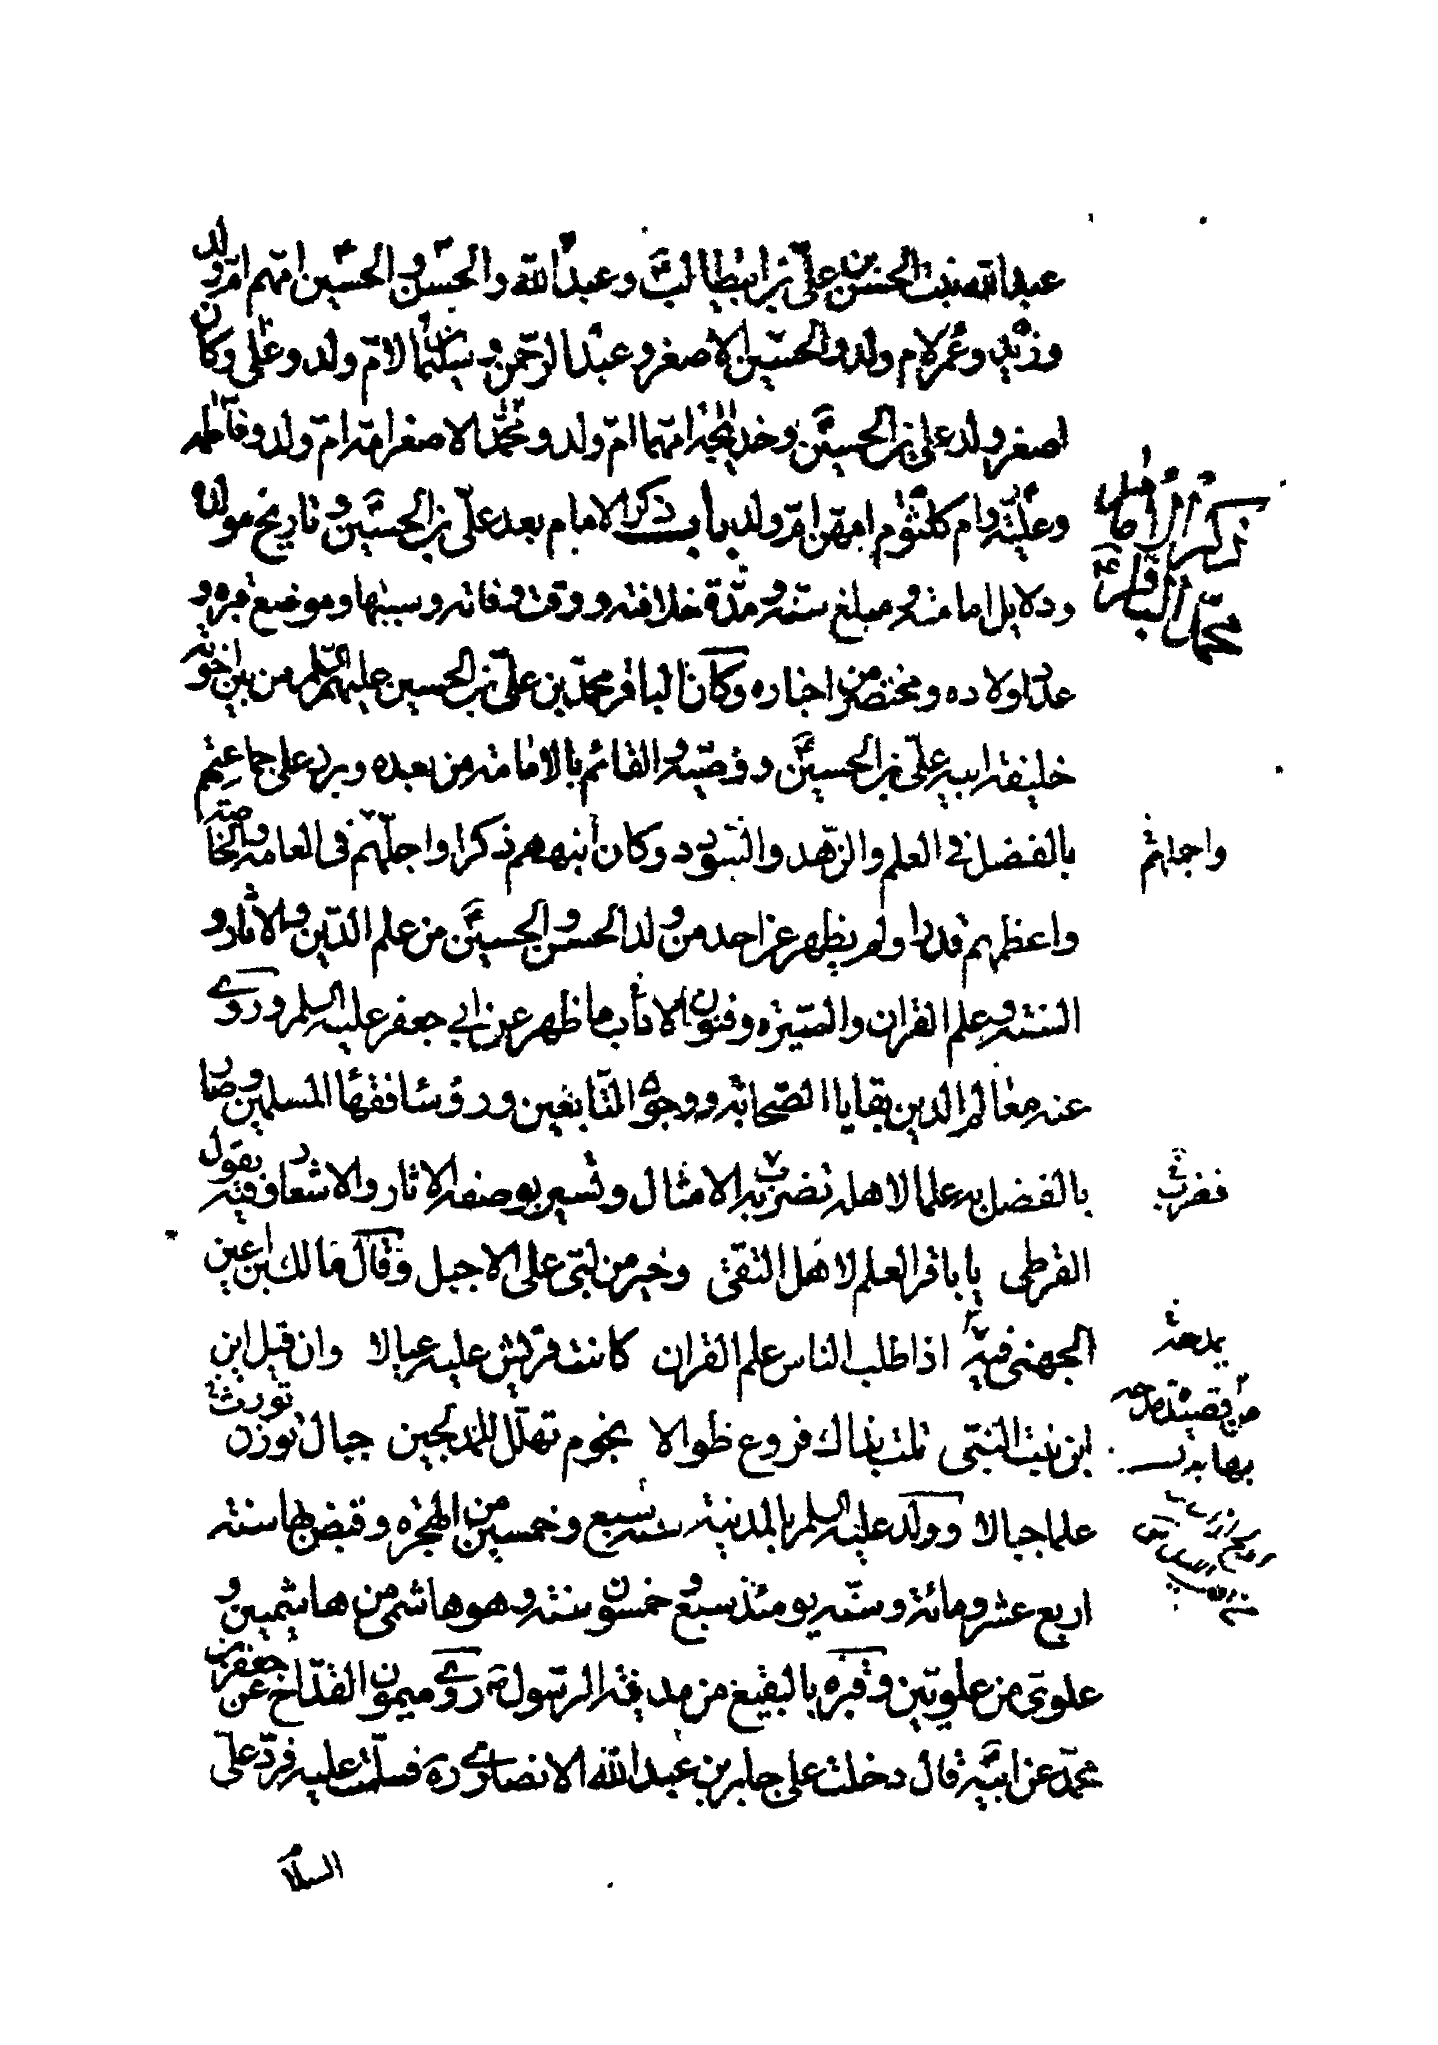 عبد الله بنت الحسن بن علي بن ابيطالب ع وعبد الله والحسن والحسين امهم ام ولد
وزيد وعمر لام ولد والحسين الاصغر وعبد الرحمن وسليمان لام ولد وعلي وكان
اصغر ولد علي بن الحسين ع وخديجه امهما ام ولد ومحمد الاصغر امه ام ولد وفاطمه
وعلية وام كلثوم امهن ام ولد باب ذكر الامام بعد علي بن الحسين ع وتاريخ مولده
ذكر الامام
محمد الباقر ع
ودلايل امامته ومبلغ سنه ومدة خلافته ووقت وفاته وسببها وموضع قبره و
عدد اولاده ومختصر من اخباره وكان الباقر محمد بن علي بن الحسين عليهم السلم من بين اخوته
خليفة ابيه علي بن الحسين ع ووصيه والقائم بالامامة من بعده وبرز على جماعتهم
بالفضل في العلم والزهد والسودد وكان انبههم ذكرا واجلهم في العامه والخاصه
واجلهم
واعظمهم قدرا ولم يظهر عن احد من ولد الحسن والحسين ع من علم الدين والاثار و
السنه وعلم القران والسيره وفنون الاداب ما ظهر عن ابي جعفر عليه السلم وروى
عنه معالم الدين بقايا الصحابه ووجوه التابعين ورؤسا فقها المسلمين وصار
بالفضل به علما لاهله تضرب به الامثال وتسير بوصفه الاثار والاشعار وفيه يقول
فضرب
القرطي يا باقر العلم لاهل التقى وخير من لبى على الاجبل وقال مالك بن اعين
الجهني فيه اذا طلب الناس علم القران كانت قريش عليه عيالا وان قيل اين
يمدحه
من قصيدة مدحه
بها
ابن بنت النبي نلت بذاك فروع طوالا نجوم تهلل للمدلجين جبال تورث
علما جبالا وولد عليه السلم بالمدينة سنه سبع وخمسين من الهجره وقبض بها سنه
اربع عشر ومائة وسنه يومئذ سبع وخمسون سنه وهو هاشمي من هاشميين و
علوي من علويين وقبره بالبقيع من مدينة الرسول ص روى ميمون القداح عن جعفر بن
محمد عن ابيه قال دخلت على جابر بن عبد الله الانصاري ره فسلمت عليه فرد علي
السلام